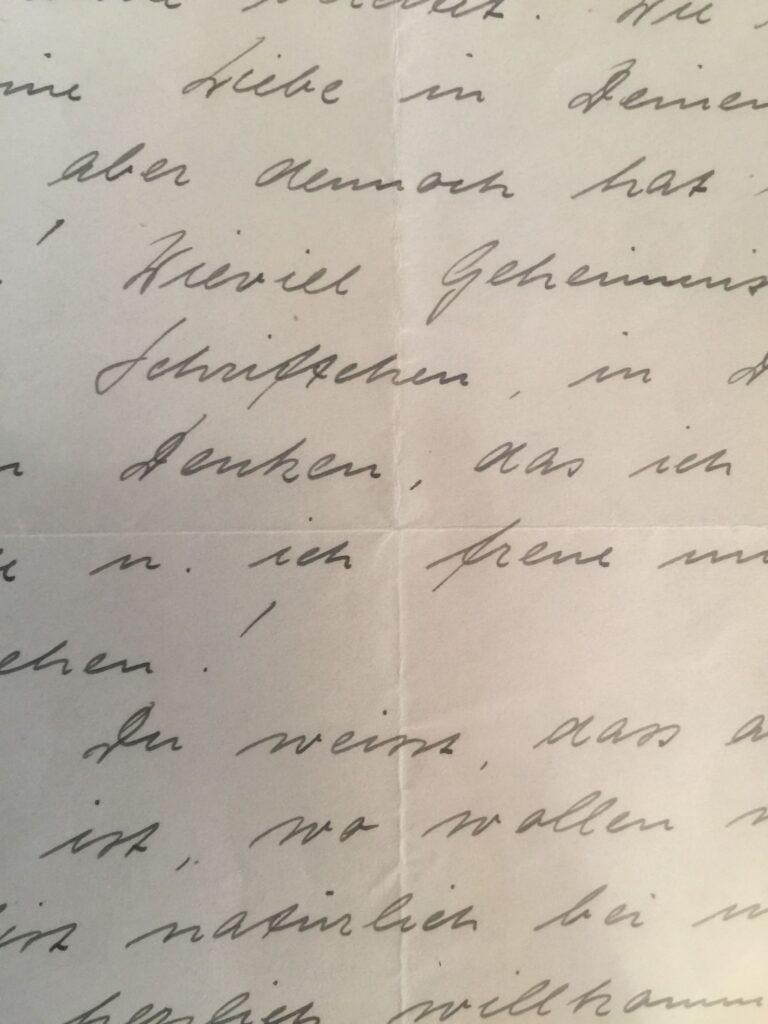 Wie
Liebe in Deinen
aber dennoch hat
! Wieviel Geheimnis
Schriftchen, in D
n Denken, das ich
u. ich freue
ehen!
Du weisst, dass a
ist, wo wollen
ist natürlich bei
herzlich willkomm